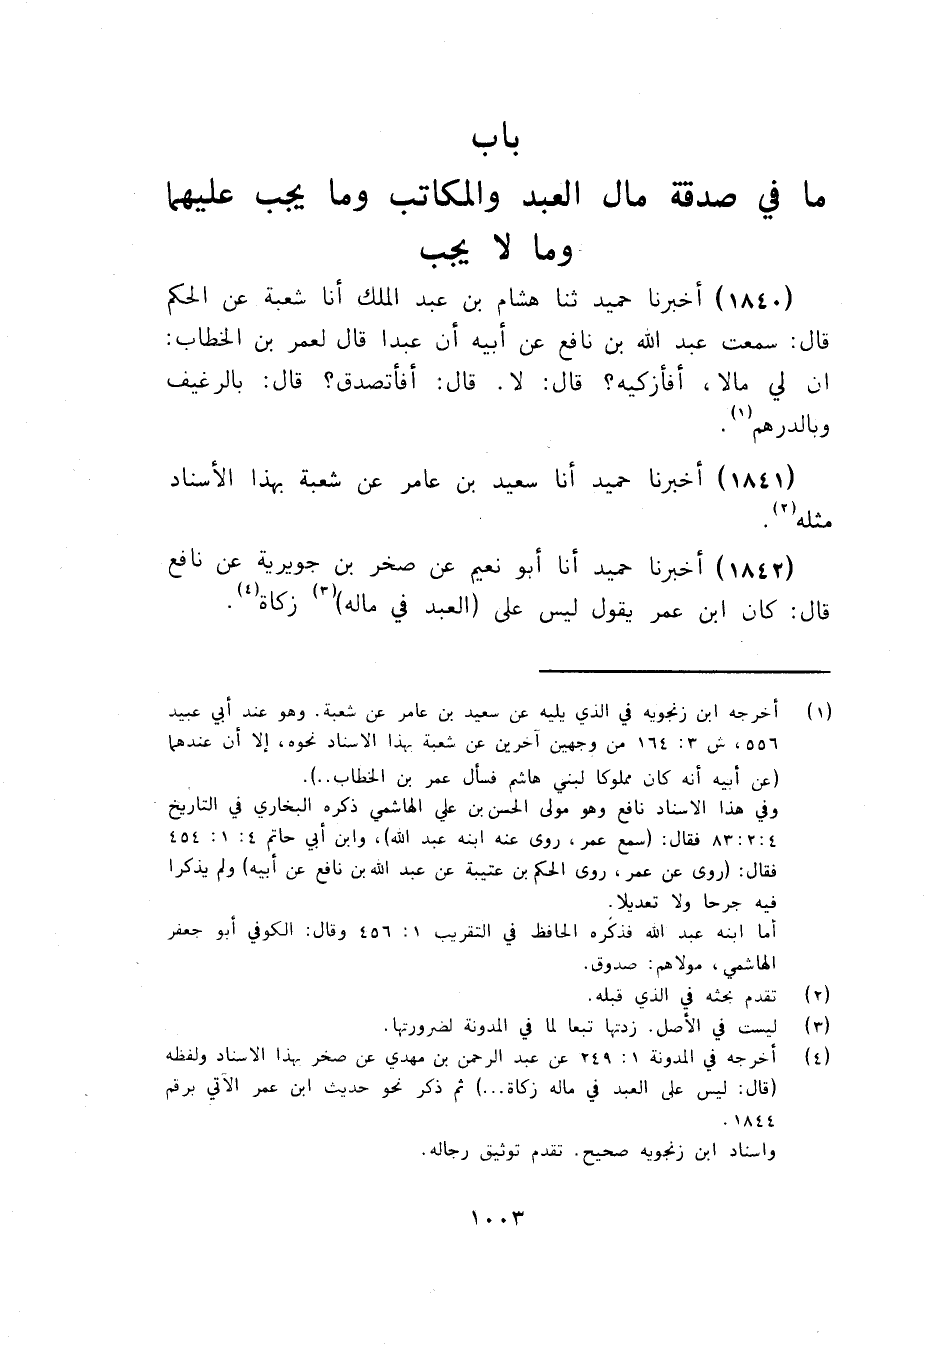 باب
ما في صدقة مال العبد والمكاتب وما يجب عليهما
وما لا يجب
(١٨٤٠) أخبرنا حميد ثنا هشام بن عبد الملك أنا شعبة عن الحكم
قال: سمعت عبد الله بن نافع عن أبيه أن عبدا قال لعمر بن الخطاب:
ان لي مالا، أفأزكيه؟ قال: لا. قال: أفأتصدق؟ قال: بالرغيف
وبالدرهم(١).
(١٨٤١) أخبرنا حميد أنا سعيد بن عامر عن شعبة بهذا الأسناد
مثله(٢).
(١٨٤٢) أخبرنا حميد أنا أبو نعيم عن صخر بن جويرية عن نافع
قال: كان ابن عمر يقول ليس على (العبد في ماله)(٣) زكاة(٤).
(١) أخرجه ابن زنجويه في الذي يليه عن سعيد بن عامر عن شعبة. وهو عند أبي عبيد
٥٥٦، ش ٣: ١٦٤ من وجهين آخرين عن شعبة بهذا الاسناد نحوه، إلا أن عندهما
(عن أبيه أنه كان مملوكا لبني هاشم فسأل عمر بن الخطاب..).
وفي هذا الاسناد نافع وهو مولى الحسن بن علي الهاشمي ذكره البخاري في التاريخ
٤:٢:٨٣ فقال: (سمع عمر، روى عنه ابنه عبد الله)، وابن أبي حاتم ٤: ١: ٤٥٤
فقال: (روى عن عمر، روى الحكم بن عتيبة عن عبد الله بن نافع عن أبيه) ولم يذكرا
فيه جرحا ولا تعديلا.
أما ابنه عبد الله فذكره الحافظ في التقريب ١: ٤٥٦ وقال: الكوفي أبو جعفر
الهاشمي، مولاهم: صدوق.
(٢) تقدم بحثه في الذي قبله.
(٣) ليست في الأصل. زدتها تبعا لما في المدونة لضرورتها.
(٤) أخرجه في المدونة ١: ٢٤٩ عن عبد الرحمن بن مهدي عن صخر بهذا الاسناد ولفظه
(قال: ليس على العبد في ماله زكاة...) ثم ذكر نحو حديث ابن عمر الآتي برقم
١٨٤٤.
واسناد ابن زنجويه صحيح. تقدم توثيق رجاله.
١٠٠٣